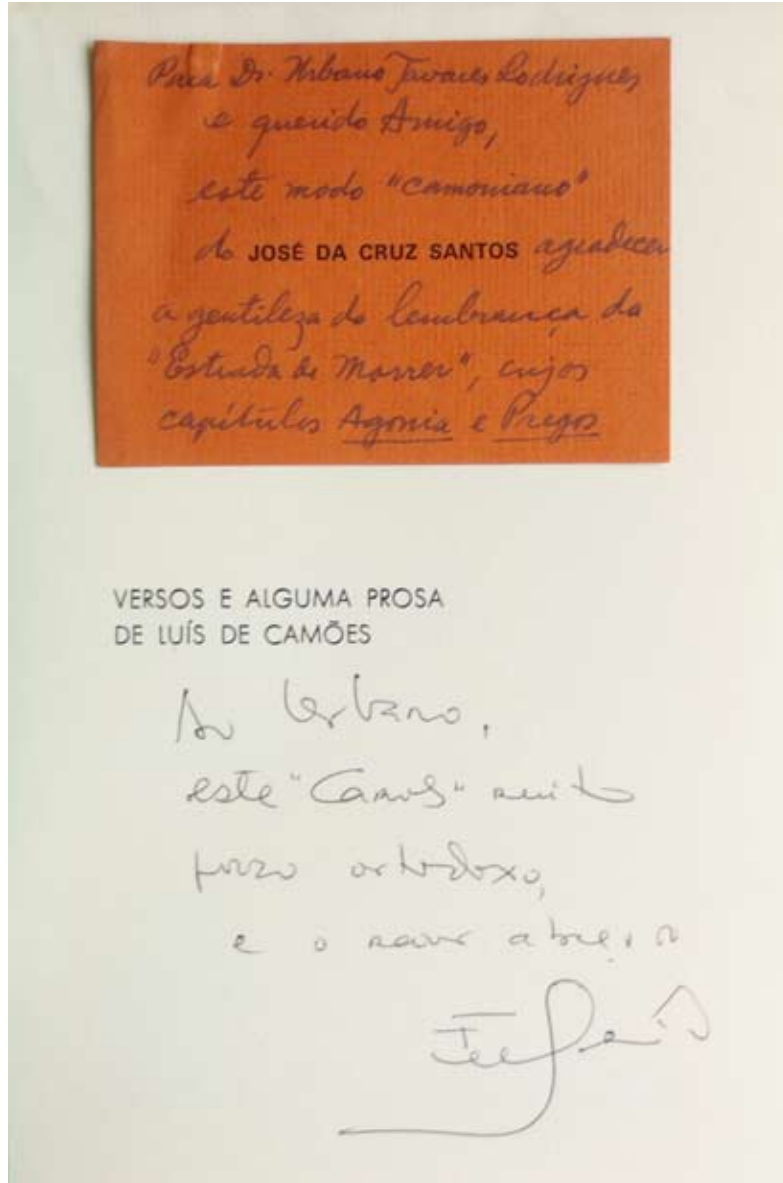 Para Dr. Urbano Tavares Rodrigues
e querido Amigo,
este modo "camoniano"
do JOSÉ DA CRUZ SANTOS agradecer
a gentileza da lembrança da
"Estrada de Morrer", cujos
capítulos Agonia e Pregos
VERSOS E ALGUMA PROSA
DE LUÍS DE CAMÕES
Ao Urbano,
este "Camões" muito
pouco ortodoxo,
e o abraço